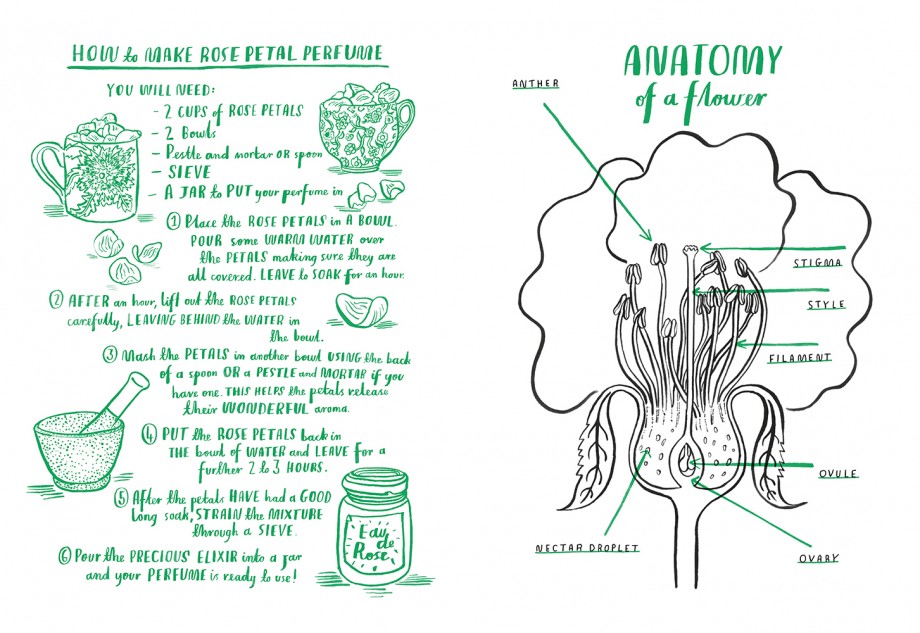 HOW to MAKE ROSE PETAL PERFUME
YOU WILL NEED:
- 2 CUPS of ROSE PETALS
- 2 Bowls
- Pestle and mortar OR spoon
- SIEVE
- A JAR to PUT your perfume in
① Place the ROSE PETALS in A BOWL.
POUR some WARM WATER over
the PETALS making sure they are
all covered. LEAVE to SOAK for an hour.
② AFTER an hour, lift out the ROSE PETALS
carefully, LEAVING BEHIND the WATER in
the bowl.
③ Mash the PETALS in another bowl USING the back
of a spoon OR a PESTLE and MORTAR if you
have one. THIS HELPS the petals release
their WONDERFUL aroma.
④ PUT the ROSE PETALS back in
THE bowl of WATER and LEAVE for a
further 2 to 3 HOURS.
⑤ After the petals HAVE had a GOOD
long soak, STRAIN the MIXTURE
through a SIEVE.
⑥ Pour the PRECIOUS ELIXIR into a jar
and your PERFUME is ready to use!
Eau
de
Rose
ANATOMY
of a flower
ANTHER
STIGMA
STYLE
FILAMENT
OVULE
NECTAR DROPLET
OVARY